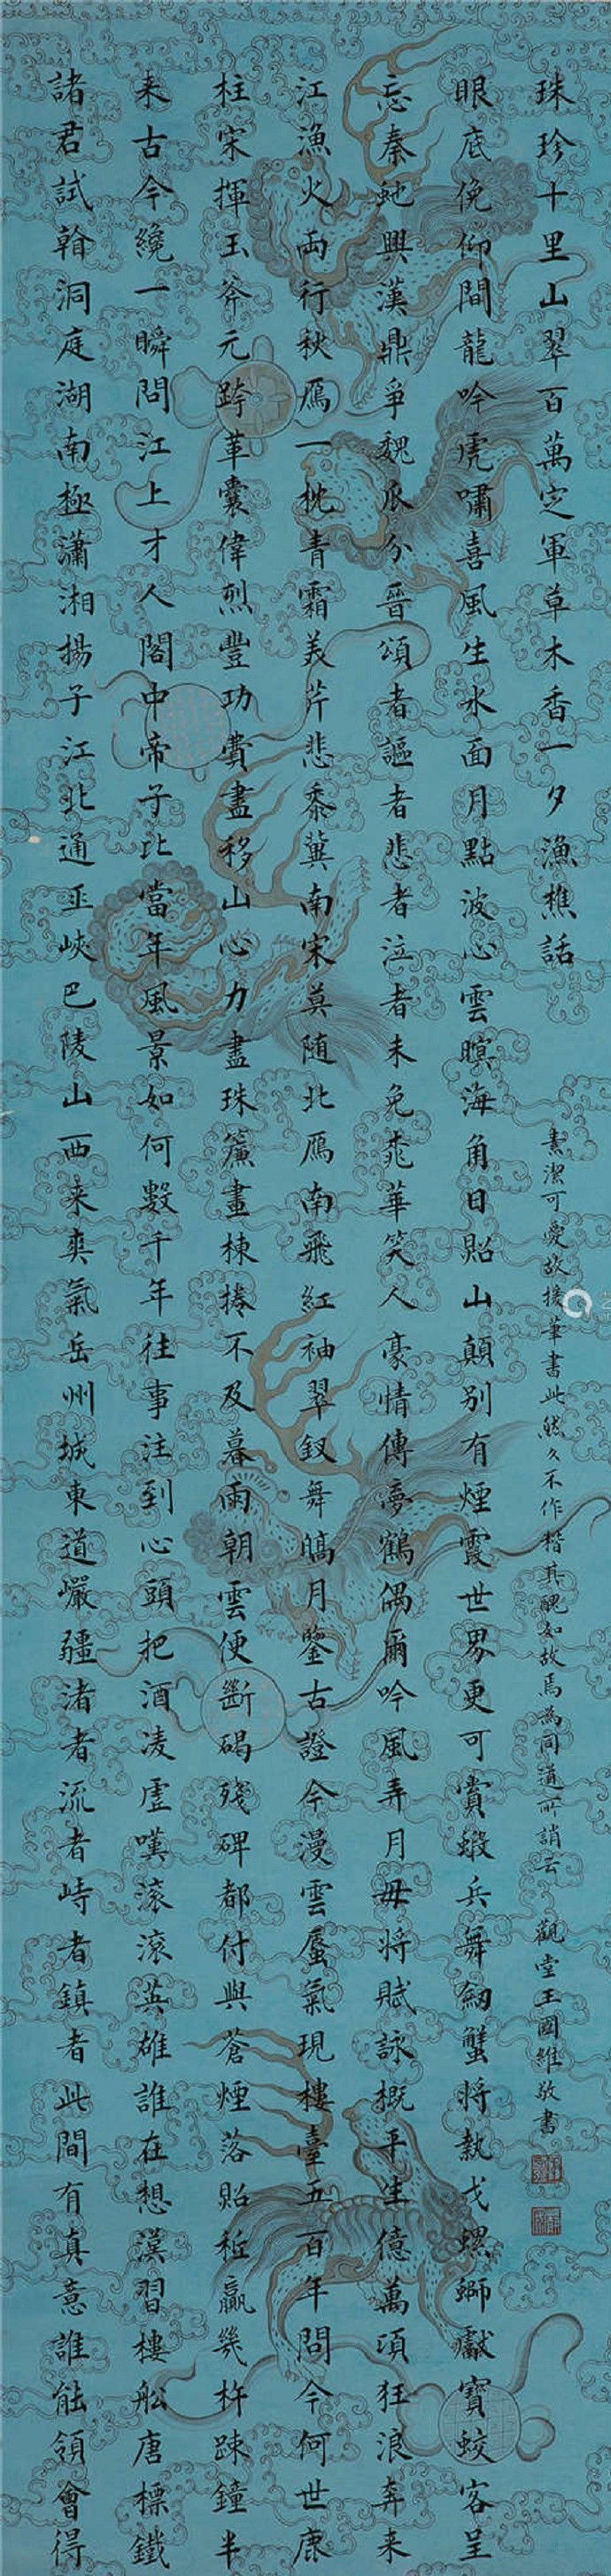 諸君試翰洞庭湖南極瀟湘揚子江北通巫峽巴陵山西来爽氣岳州城東道巖疆渚者流者峙者鎮者此間有真意誰能領會得
来古今纔一瞬問江上才人閣中帝子比當年風景如何數千年往事注到心頭把酒凌虛嘆滚滚英雄誰在想漢習樓船唐標鐵
柱宋揮玉斧元跨革囊偉烈豐功費盡移山心力盡珠簾畫棟捲不及暮雨朝雲便斷碣殘碑都付與蒼煙落貽秪贏幾杵踈鐘半
江漁火両行秋鴈一枕青霜美芹悲黍冀南宋莫随北鴈南飛紅袖翠釵舞皜月鑒古證今漫雲蜃氣現樓臺五百年問今何世康
忘秦虵興漢鼎爭魏瓜分晉頌者謳者悲者泣者未免桃華笑人豪情傳夢鶴偶爾吟風弄月毋將賦詠概平生億萬頃狂浪奔来
眼底俛仰間龍吟虎嘯喜風生水面月點波心雲暝海角日貽山顛别有煙霞世界更可賞蝦兵舞劒蟹將執戈螺螄獻寶蛟客呈
珠珍十里山翠百萬定軍草木香一夕漁樵話
素潔可愛故援筆書此然久不作楷其醜如故焉為同道所誚云 觀堂王國維敬書